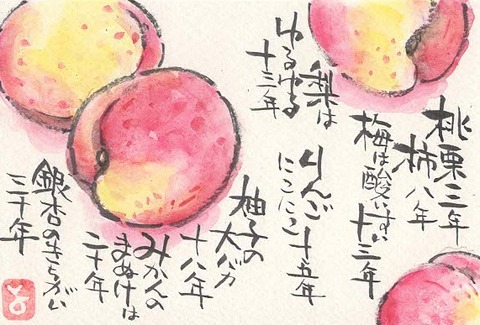 桃栗三年
柿八年
梅は酸いすい十三年
梨は
ゆるゆる
十三年
りんごにこにこ十五年
柚子の
大バカ
十八年
みかんの
まぬけは
二十年
銀杏のきちがい
三十年